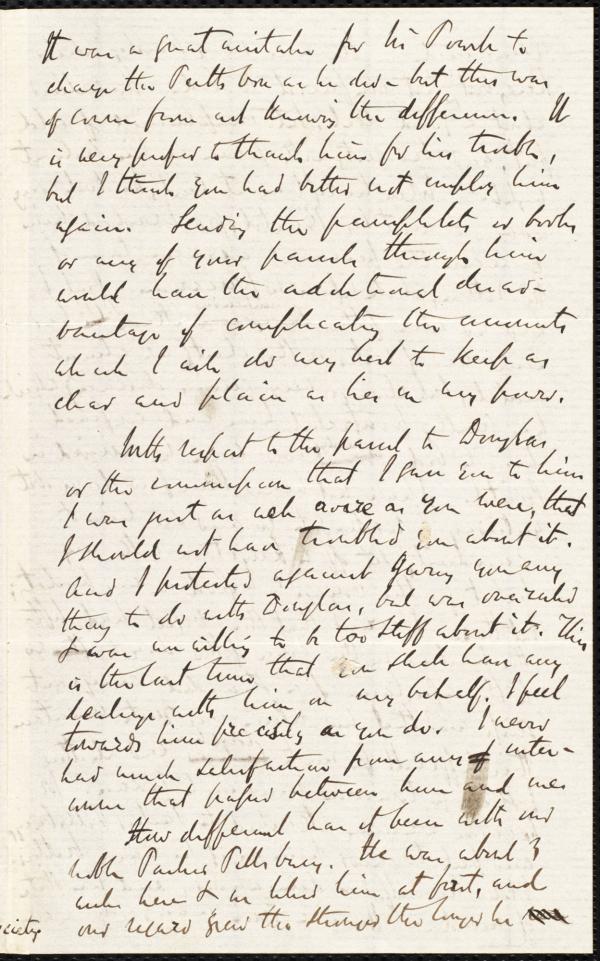 It was a great mistake for Mr Powell to
charge the Perth box as he did - but this was
of course from not knowing the difference. It
is very proper to thank him for his trouble,
but I think you had better not employ him
again. Sending the pamphlets or books
or any of your parcels through him
would have the additional disad-
vantage of complicating the accounts
which I will do my best to keep as
clear and plain as lies in my power.
With respect to the parcel to Douglas
or the commission that I gave you to him
I was just as well aware as you were, that
I should not have troubled you about it.
And I protested against giving you any
thing to do with Douglas, but was overruled
& was unwilling to be too stiff about it. This
is the last time that you shall have any
dealings with him on my behalf. I feel
towards him precisely as you do. I never
had much satisfaction from any of inter-
course that passed between him and me
How different has it been with our
noble Parker Pillsbury. He was about 3
weeks here & we liked him at first, and
our regard grew the stronger the longer he